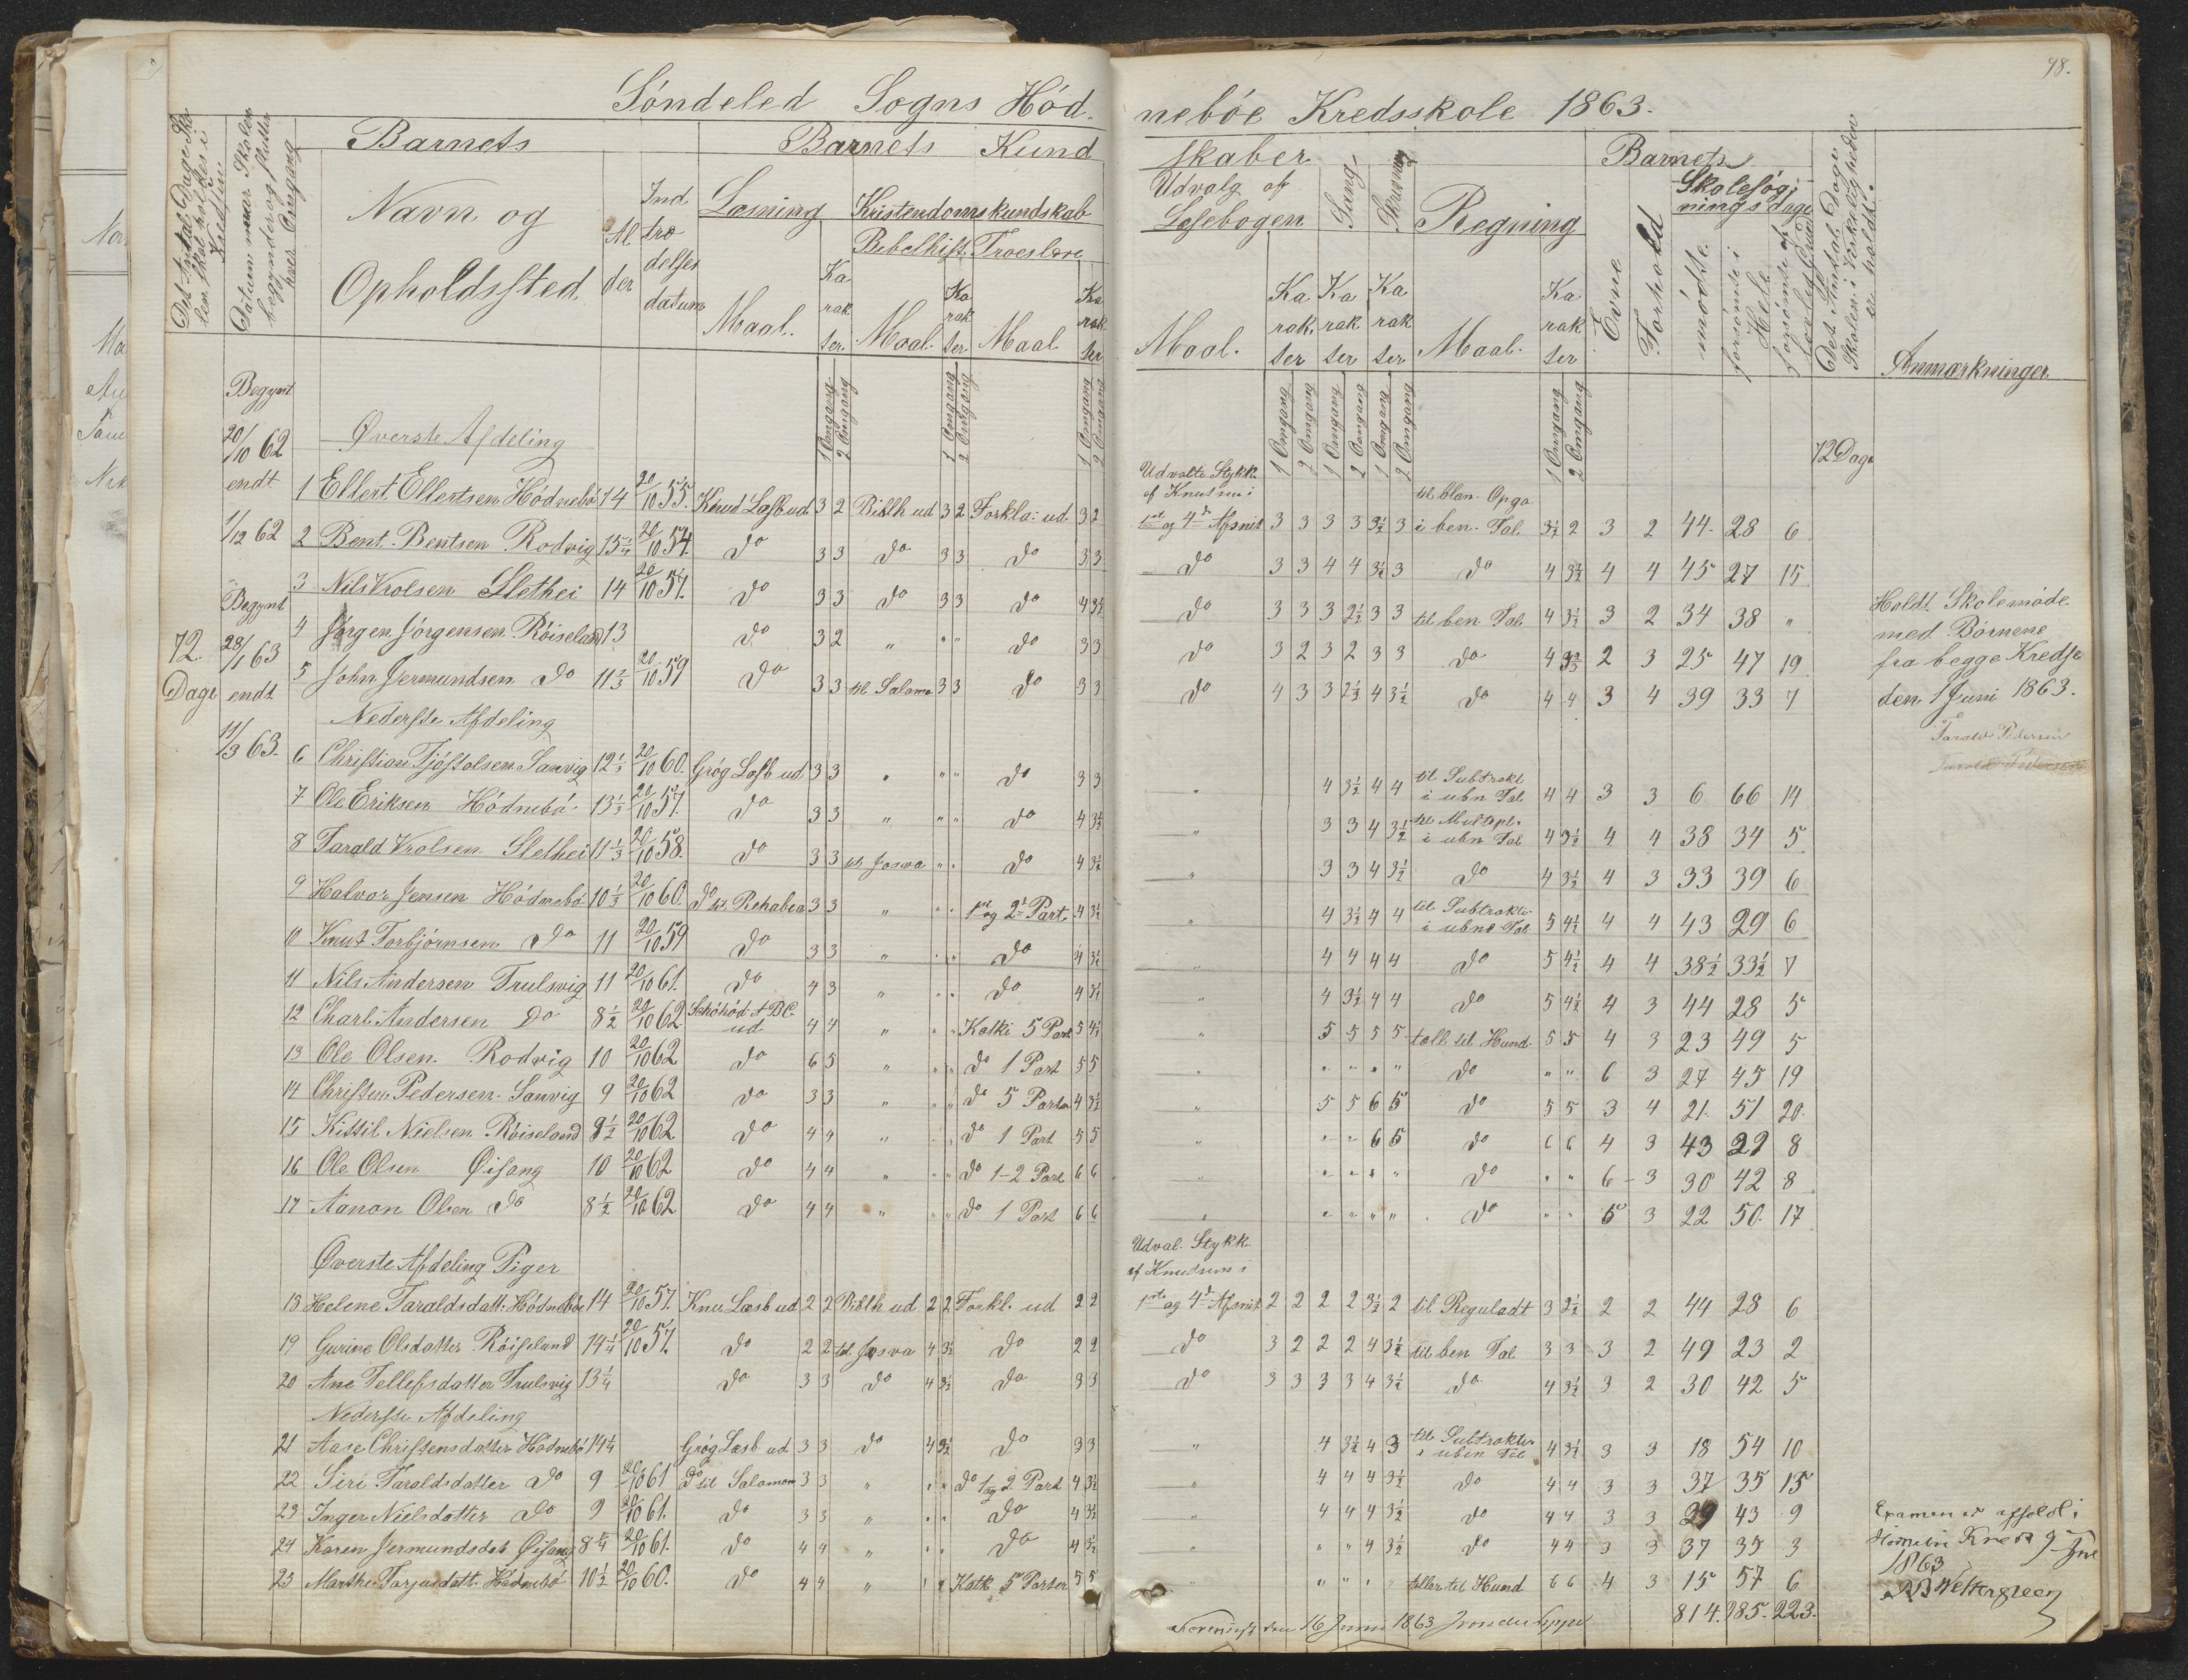 98.
Søndeled Sogns Hød-
nebøe Kredsskole 1863.
Det Antal Dage Sko-
len skal holdes i
Kredsen
Datum naar Skolen
begynder og slutter
hver Omgang
Barnets
Navn og
Opholdssted.
Al
der
Ind
træ
delses
datum
Barnets Kund
skaber
Læsning
Maal.
Ka
rak
ter
Kristendomskundskab
Bibelhist. Troeslære
Maal.
Ka
rak
ter
Maal
Ka
rak
ter
Udvalg af
Læsebogen
Maal.
Ka
rak.
ter
Sang
Ka
rak
ter
Skrivning
Ka
rak
ter
Regning
Maal.
Ka
rak
ter
Barnets
Evne
Forhold
Skolesøg-
nings dage
mødte
forsømte i
Hele
forsømte af
lovlig Grund
Det Antal Dage
Skolen i Virkeligheden
er holdt.
Anmærkninger.
1 Omgang 2 Omgang 1 Omgang 2 Omgang 1 Omgang 2 Omgang
1 Omgang 2 Omgang 1 Omgang 2 Omgang 1 Omgang 2 Omgang 1 Omgang 2 Omgang
72 Dage
Begynt
20/10 62
endt
1/12 62
Begynt
28/1 63
endt
11/3 63.
72
Dage
Øverste Afdeling
Udvalte Stykk.
af Knudsens i
til blan. Opga
1 Ellert Ellertsen Hødnebø 14 20/10 55. Knud Læsb ud 3 2 Biblh ud 3 2 Forkla: ud. 3 2 1ste og 4de Afsnit 3 3 3 3 3½ 3 i ben. Tal 3½ 2 3 2 44. 28 6
2 Bent. Bentsen Rodvig 15¼ 20/10 54. do 3 3 do 3 3 do 3 3 do 3 3 4 4 3½ 3 do 4 3½ 4 4 45 27 15
3 Nils Vrolsen Slethei 14 20/10 57. do 3 3 do 3 3 do 4 3½ do 3 3 3 2½ 3 3 til ben. Tal 4 3½ 3 2 34 38 "
4 Jørgen Jørgensen Røiseland 13 do 3 2 " " " do 3 3 do 3 2 3 2 3 3 do 4 3½ 2 3 25 47 19
5 John Jermundsen do 11⅔ 20/10 59 do 3 3 til Salomo 3 3 do 3 3 do 4 3 3 2½ 4 3½ do 4 4 3 4 39 33 7
Holdt Skolemøde
med Børnene
fra begge Kredse
den 1 Juni 1863.
Tarald Pedersen
Tarald Pedersen
Nederste Afdeling
6 Christian Tjøstolsen Sanvig 12⅓ 20/10 60. Grøg Læsb ud 3 3 " " " do 3 3 " 4 3½ 4 4 til Subtrakt i ubn Tal 4 4 3 3 6 66 14
7 Ole Eriksen Hødnebø 13⅓ 20/10 57. do 3 3 " " " do 4 3½ " 3 3 4 3½ til Multipl. i ubn Tal 4 3½ 4 4 38 34 5
8 Tarald Vrolsen Slethei 11⅓ 20/10 58. do 3 3 til Josva " " do 4 3½ " 3 3 4 3½ do 4 3½ 4 3 33 39 6
9 Halvor Jensen Hødnebø 10⅓ 20/10 60. do til Rehabea 3 3 " " " 1ste og 2den Part. 4 3½ " 4 3½ 4 4 til Subtrakti i ubne Tal 5 4½ 4 4 43 29 6
10 Knut Torbjørnsen do 11 20/10 59 do 3 3 " " " do 4 3½ " 4 4 4 4 do 5 4½ 4 4 38½ 33½ 7
11 Nils Andersen Trulsvig 11 20/10 61. do 4 3 " " " do 4 3½ " 4 3½ 4 4 do 5 4½ 4 3 44 28 5
12 Charl. Andersen do 8½ 20/10 62 ABC. ud 4 4 " " " Katki 5 Part 5 4½ " 5 5 5 5 tælle til Hund- 5 5 4 3 23 49 5
13 Ole Olsen. Rodvig 10 20/10 62 do 6 5 " " " do 1 Part 5 5 " " " " " do " " 6 3 27 45 19
14 Christen Pedersen Sanvig 9 20/10 62 do 3 3 " " " do 5 Parter 4 3½ " 5 5 6 5 do 5 5 3 4 21. 51 20.
15 Kittil Nielsen Røiseland 9½ 20/10 62 do 4 4 " " " do 1 Part 5 5 " " " 6 5 do 6 6 4 3 43 29 8
16 Ole Olsen Øisang 10 20/10 62 do 4 4 " " " do 1-2 Part 6 6 " " " " " do " " 6 3 30 42 8
17 Aanon Olsen do 8½ 20/10 62 do 4 4 " " " do 1 Part 6 6 " " " " " do " " 5 3 22 50. 17
Øverste Afdeling Piger
Udval. Stykk.
af Knudsens i
18 Helene Taraldsdatt. Hødnebøe 14 20/10 57. Knu Læsb ud 2 2 Biblh ud 2 2 Forkl. ud 2 2 1ste og 4de Afsnit 2 2 2 2 3½ 2 til Reguladt 3 2½ 2 2 44 28 6
19 Gurine Olsdatter Røiseland 14¼ 20/10 57. do 2 2 til Josva 4 3½ do 2 2 do 3 2 2 2 4 3½ til ben Tal 3 3 3 2 49 23 2
20 Ane Tellefsdatter Trulsvig 13¼ do 3 3 do 4 3½ do 3 3 do 3 3 3 3 4 3½ do 4 3½ 3 2 30 42 5
Nederste Afdeling
21 Aase Christensdatter Hødnebø 14¼ Grøg Læsb ud 3 3 do 4 3½ do 3 3 " 4 3½ 4 3 til Subtraktio i uben Tal 4 3½ 3 3 18 54 10
22 Siri Taraldsdatter do 9 20/10 61 do til Salomon 3 3 " " " do 1 og 2 Part 4 3½ " 4 4 4 3½ do 4 4 3 3 37 35 15
23 Inger Nielsdatter do 9 20/10 61. do 3 3 " " " do 4 3½ " 4 4 4 3½ do 4 4 3 3 29 43 9
24 Karen Jermundsdat Øisang 8¼ 20/10 61. do 4 4 " " " do 4 3½ " " " 4 3½ do 4 4 3 3 37 35 3
25 Marthe Tarjusdatt. Hødnebø 10½ 20/10 60. do 4 4 " " " Katk 5 Parter 5 5 " " " " " teller til Hund 6 6 4 3 15 57 6
814. 985. 223.
Examen er afholdt i
Kreds 9 Jun
1863
Wettergreen
den 16 Juni 1863